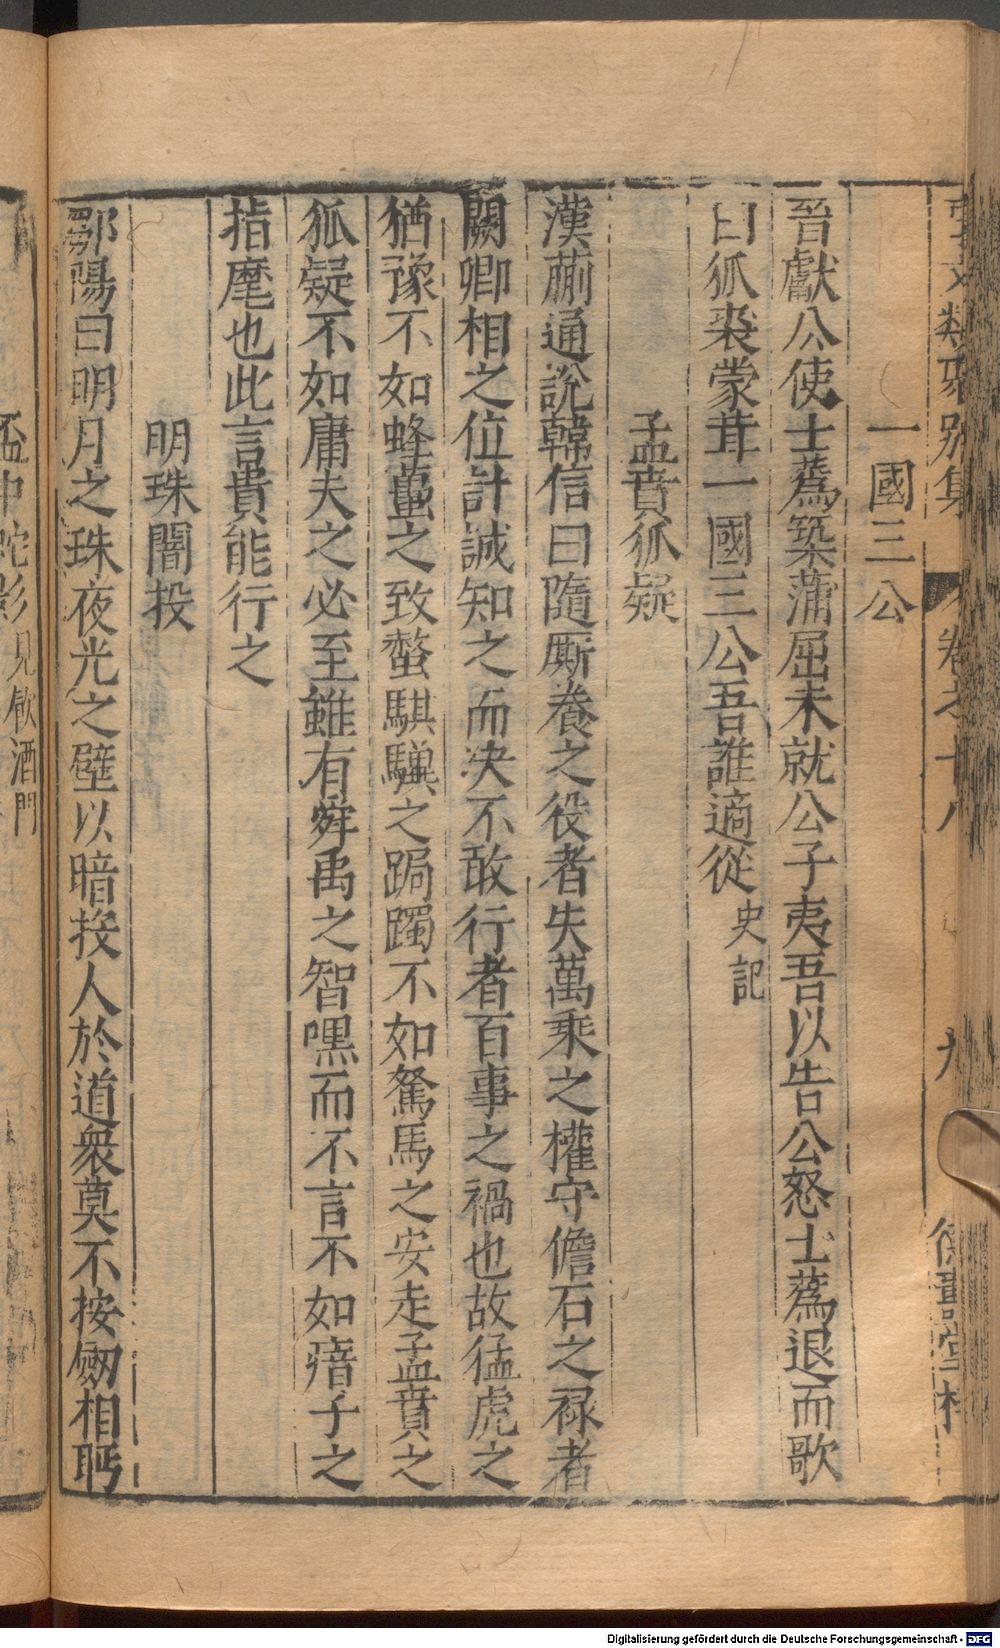 事文類聚別集 卷之十八 九 德壽堂梓
一國三公
晉獻公使士蔿築蒲屈未就公子夷吾以告公怒士蔿退而歌
曰狐裘蒙茸一國三公吾誰適從史記
孟賁狐疑
漢蒯通說韓信曰隨厮養之役者失萬乘之權守儋石之祿者
闕卿相之位計誠知之而决不敢行者百事之禍也故猛虎之
猶豫不如蜂蠆之致螫騏驥之跼躅不如駑馬之安走孟賁之
狐疑不如庸夫之必至雖有舜禹之智嘿而不言不如瘖子之
指麾也此言貴能行之
明珠闇投
鄒陽曰明月之珠夜光之璧以暗投人於道衆莫不按劔相眄
盃中蛇影見飲酒門
Digitalisierung gefördert durch die Deutsche Forschungsgemeinschaft - DFG